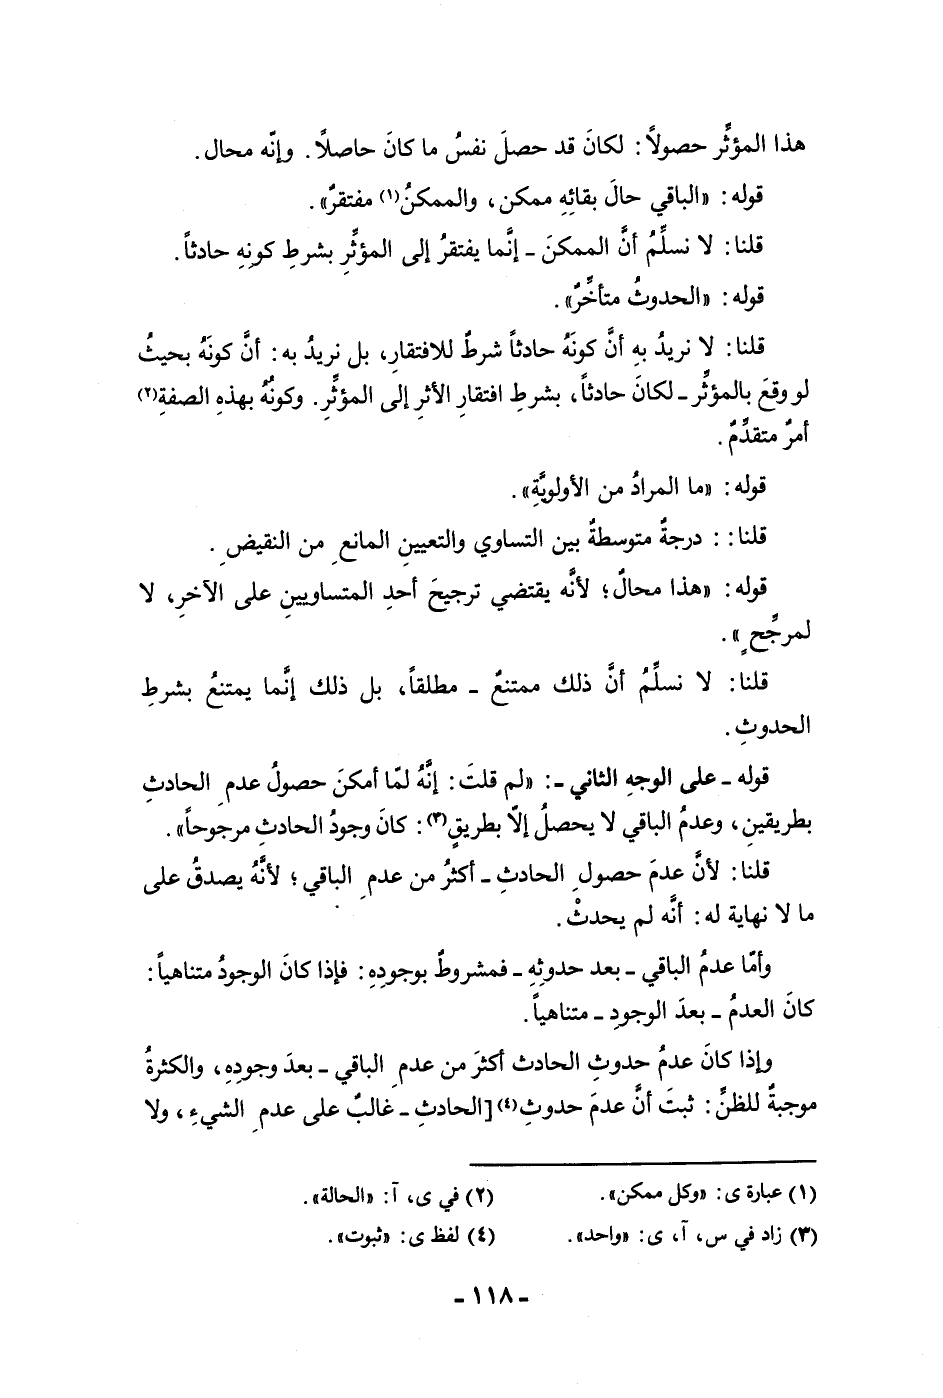 هذا المؤثِّر حصولاً: لكانَ قد حصلَ نفسُ ما كانَ حاصلاً. وإنّه محال.
قوله: «الباقي حالَ بقائِهِ ممكن، والممكنُ(١) مفتقرٌ».
قلنا: لا نسلِّمُ أنَّ الممكنَ ـ إنَّما يفتقرُ إلى المؤثِّرِ بشرطِ كونِهِ حادثاً.
قوله: «الحدوثُ متأخِّرٌ».
قلنا: لا نريدُ بهِ أنَّ كونَهُ حادثاً شرطٌ للافتقارِ، بل نريدُ به: أنَّ كونَهُ بحيثُ
لو وقعَ بالمؤثِّر ـ لكانَ حادثاً، بشرطِ افتقارِ الأثرِ إلى المؤثِّرِ. وكونُهُ بهذهِ الصفةِ(٢)
أمرٌ متقدِّمٌ.
قوله: «ما المرادُ من الأولويَّةِ».
قلنا: : درجةٌ متوسطةٌ بين التساوي والتعيينِ المانعِ من النقيضِ.
قوله: «هذا محالٌ؛ لأنَّه يقتضي ترجيحَ أحدِ المتساويينِ على الآخرِ، لا
لمرجِّحٍ».
قلنا: لا نسلِّمُ أنَّ ذلك ممتنعٌ ـ مطلقاً، بل ذلك إنَّما يمتنعُ بشرطِ
الحدوثِ.
قوله ـ على الوجهِ الثاني ـ: «لم قلتَ: إنَّهُ لمّا أمكنَ حصولُ عدمِ الحادثِ
بطريقينِ، وعدمُ الباقي لا يحصلُ إلّا بطريقٍ(٣): كانَ وجودُ الحادثِ مرجوحاً».
قلنا: لأنَّ عدمَ حصولِ الحادثِ ـ أكثرُ من عدمِ الباقي؛ لأنَّهُ يصدقُ على
ما لا نهاية له: أنَّه لم يحدثْ.
وأمّا عدمُ الباقي ـ بعد حدوثِهِ ـ فمشروطٌ بوجودِهِ: فإذا كانَ الوجودُ متناهياً:
كانَ العدمُ ـ بعدَ الوجودِ ـ متناهياً.
وإذا كانَ عدمُ حدوثِ الحادث أكثرَ من عدمِ الباقي ـ بعدَ وجودِهِ، والكثرةُ
موجبةٌ للظنِّ: ثبتَ أنَّ عدمَ حدوثِ(٤) [الحادثِ ـ غالبٌ على عدمِ الشيءِ، ولا
(١) عبارة ى: «وكل ممكن». (٢) في ى، آ: «الحالة».
(٣) زاد في س، آ، ى: «واحد». (٤) لفظ ى: «ثبوت».
ـ ١١٨ ـ